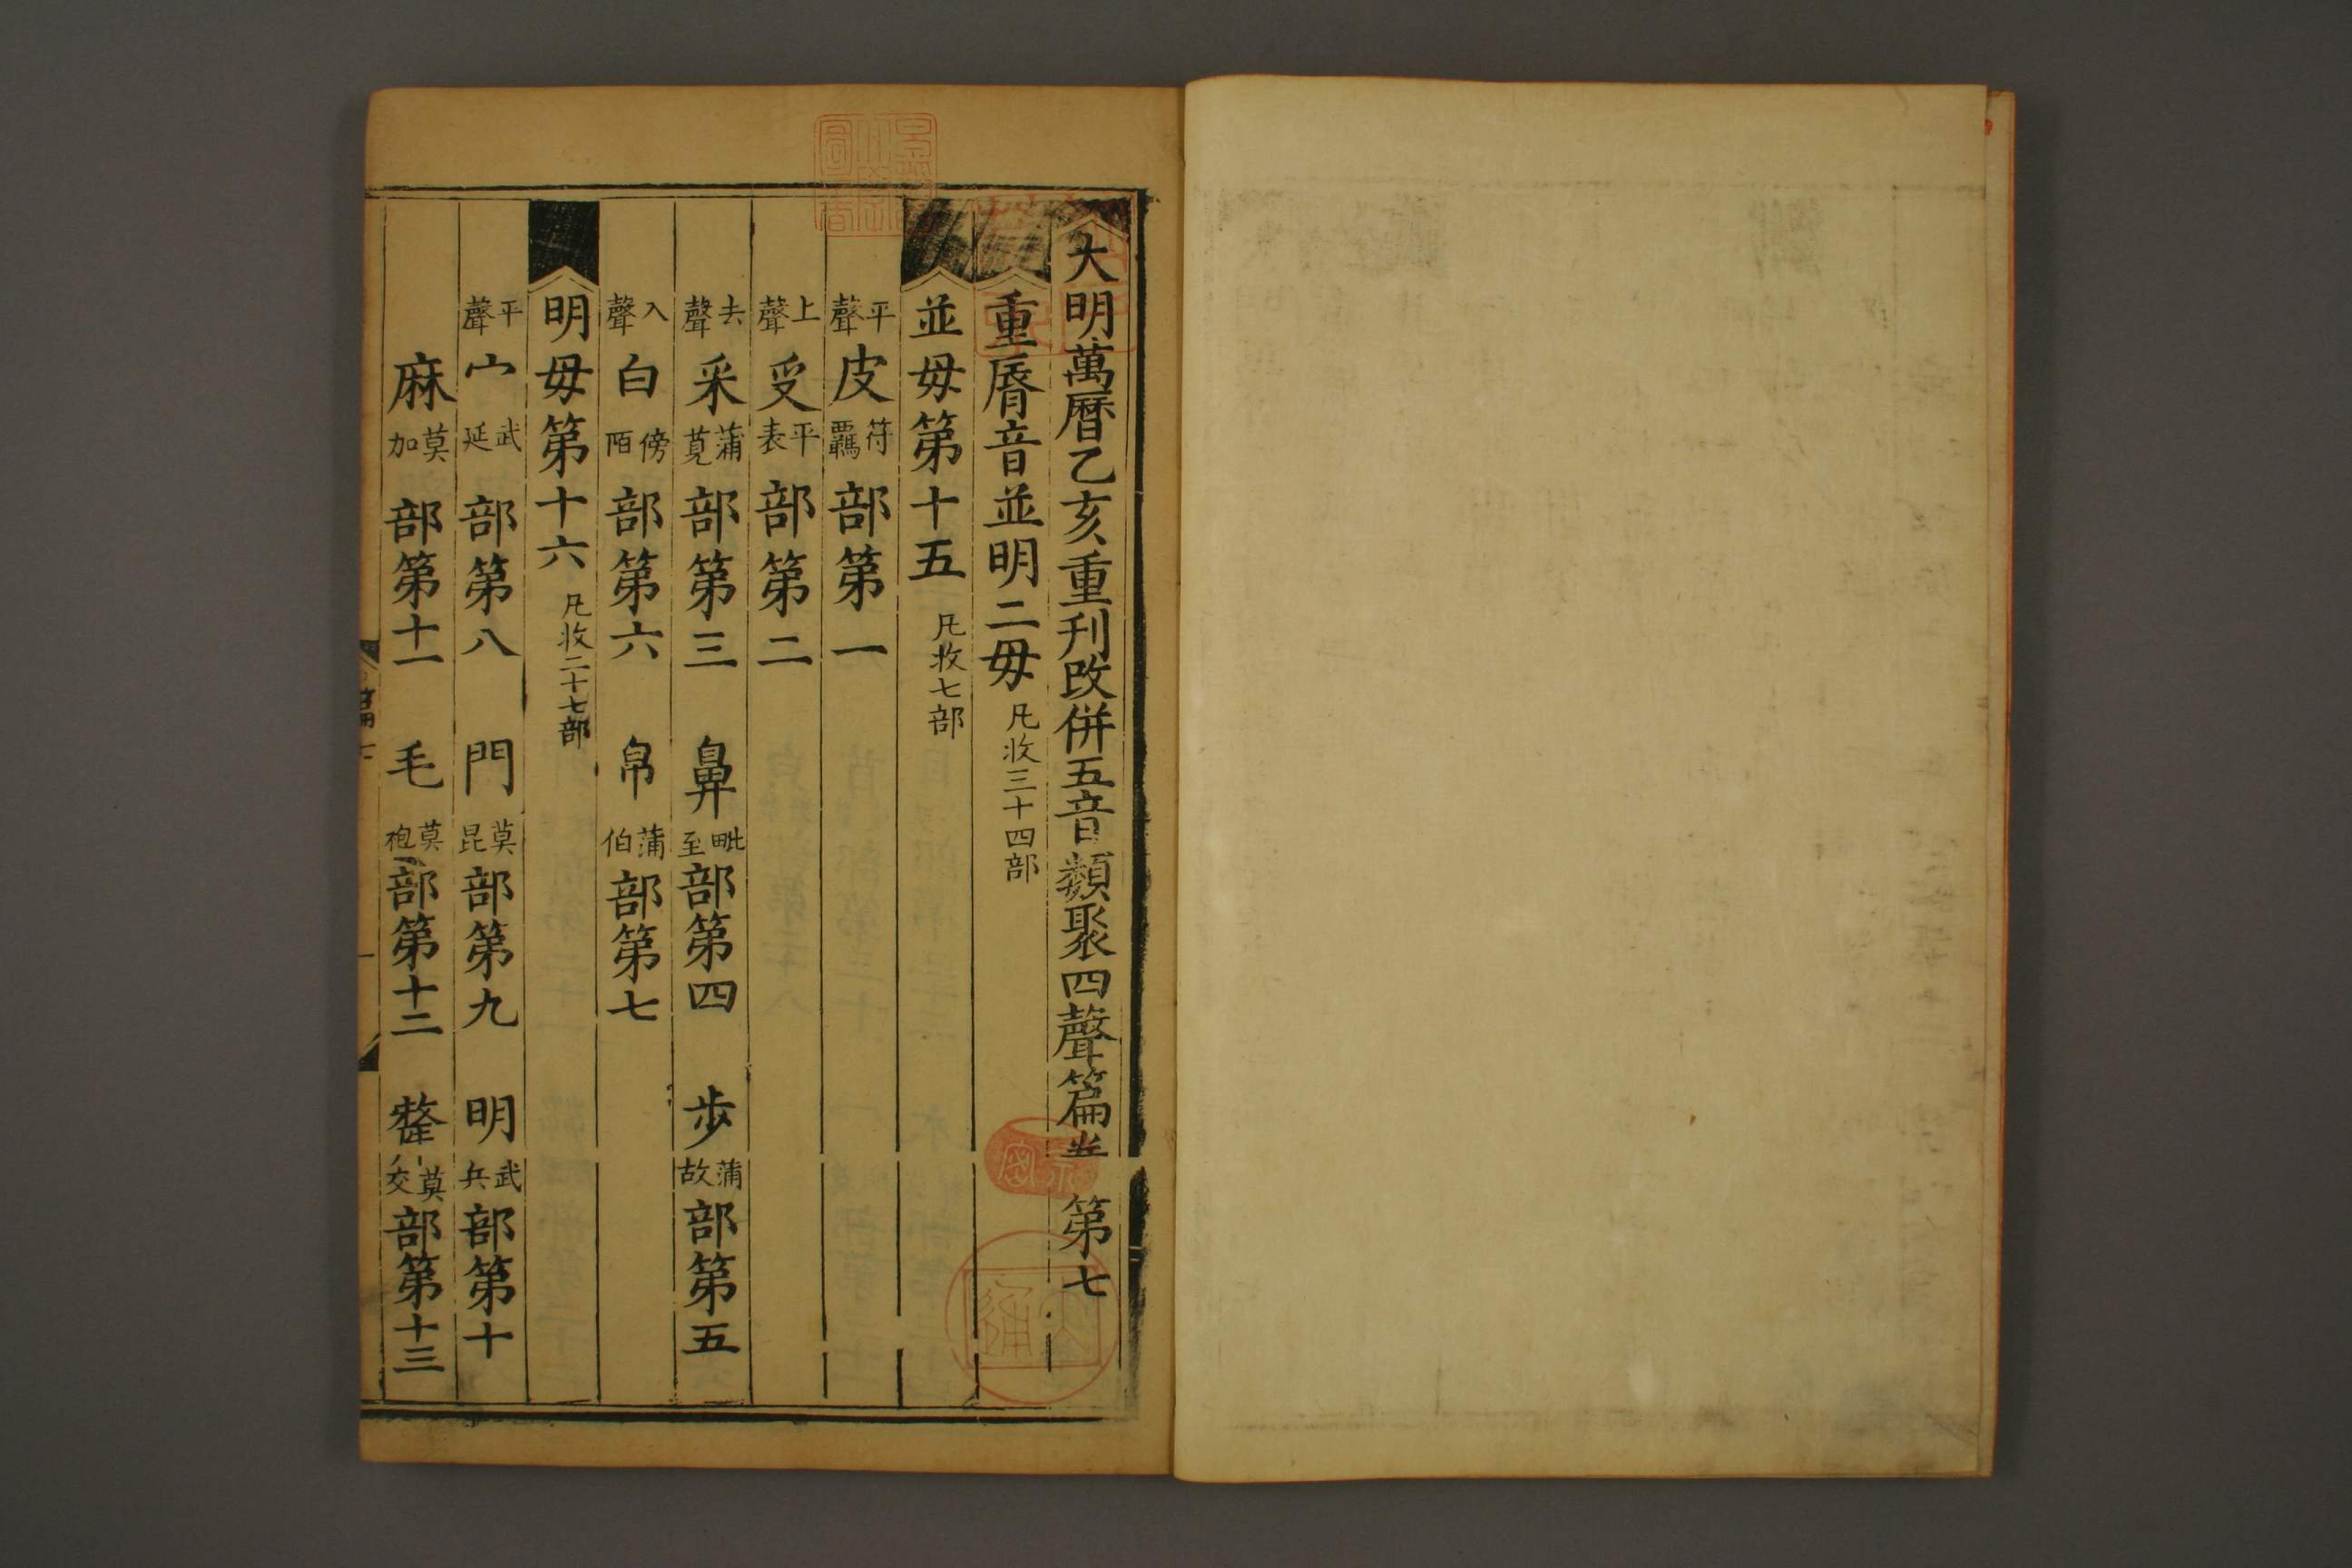 大明萬曆乙亥重刋改併五音類聚四聲篇卷第七
重脣音並明二毋凡收三十四部
並毋第十五凡收七部
平聲皮符羈部第一
上聲𠬪平表部第二
去聲釆蒲莧部第三 鼻毗至部第四 步蒲故部第五
入聲白傍陌部第六 帛蒲伯部第七
明毋第十六凡收二十七部
平聲宀武延部第八 門莫昆部第九 明武兵部第十
麻莫加部第十一 毛莫袍部第十二 犛莫交部第十三
篇七